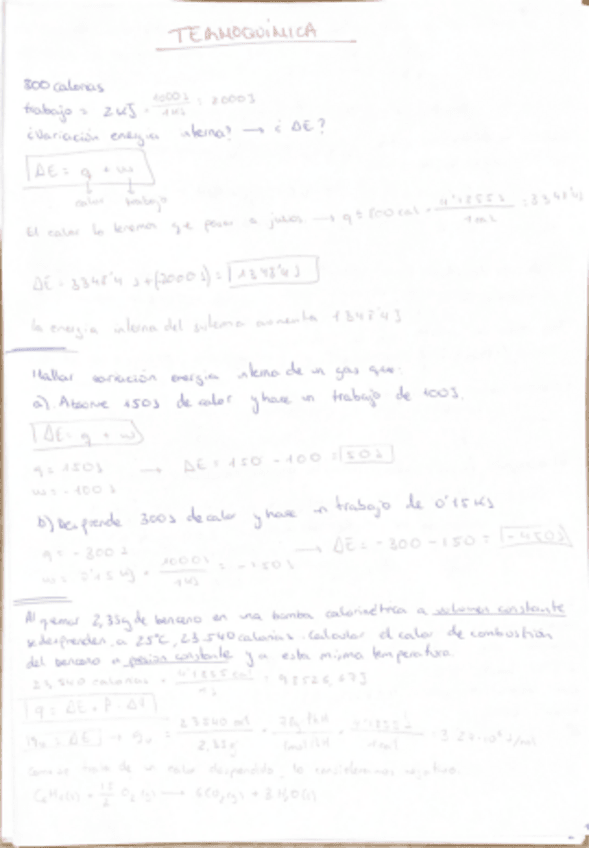 TERMOQUÍMICA
800 calorías
trabajo = 2 KJ · 1000 J / 1 KJ = 2000 J
¿Variación energía interna? → ¿ΔE?
ΔE = q + w
calor trabajo
El calor lo tenemos que pasar a julios → q = 800 cal ·
ΔE = 3348'4 J + (2000 J) = 1348'4 J
la energía interna del sistema aumenta 1348'4 J
Hallar variación energía interna de un gas que:
a) Absorve 150 J de calor y hace un trabajo de 100 J.
ΔE = q + w
q = 150 J → ΔE = 150 - 100 = 50 J
w = -100 J
b) Desprende 300 J de calor y hace un trabajo de 0'15 KJ
q = -300 J
w = 0'15 KJ · 1000 J / 1 KJ = -150 J → ΔE = -300 - 150 = -450 J
Al quemar 2,33 g de benceno en una bomba calorimétrica a volumen constante
se desprenden, a 25°C, 23.540 calorías. Calcular el calor de combustión
del benceno a presión constante y a esta misma temperatura.
23,540 calorías ·
qv = ΔE →
Como se trata de un calor desprendido, lo consideramos negativo.